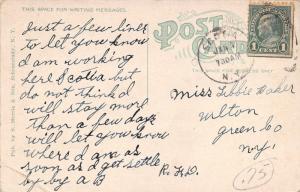 THIS SPACE FOR WRITING MESSAGES.
POST CARD
Just a few lines
to let you know
I am working
here Scotia but
do not thindk I
will stay more
than a few days
will let you know
where I am as
soon as I get settle
by by a B
1 CENT 1
JAN
730 AM
N.Y.
Miss Tibbie Baker
Wilton
green bo
N.Y.
R.F.D.
.75